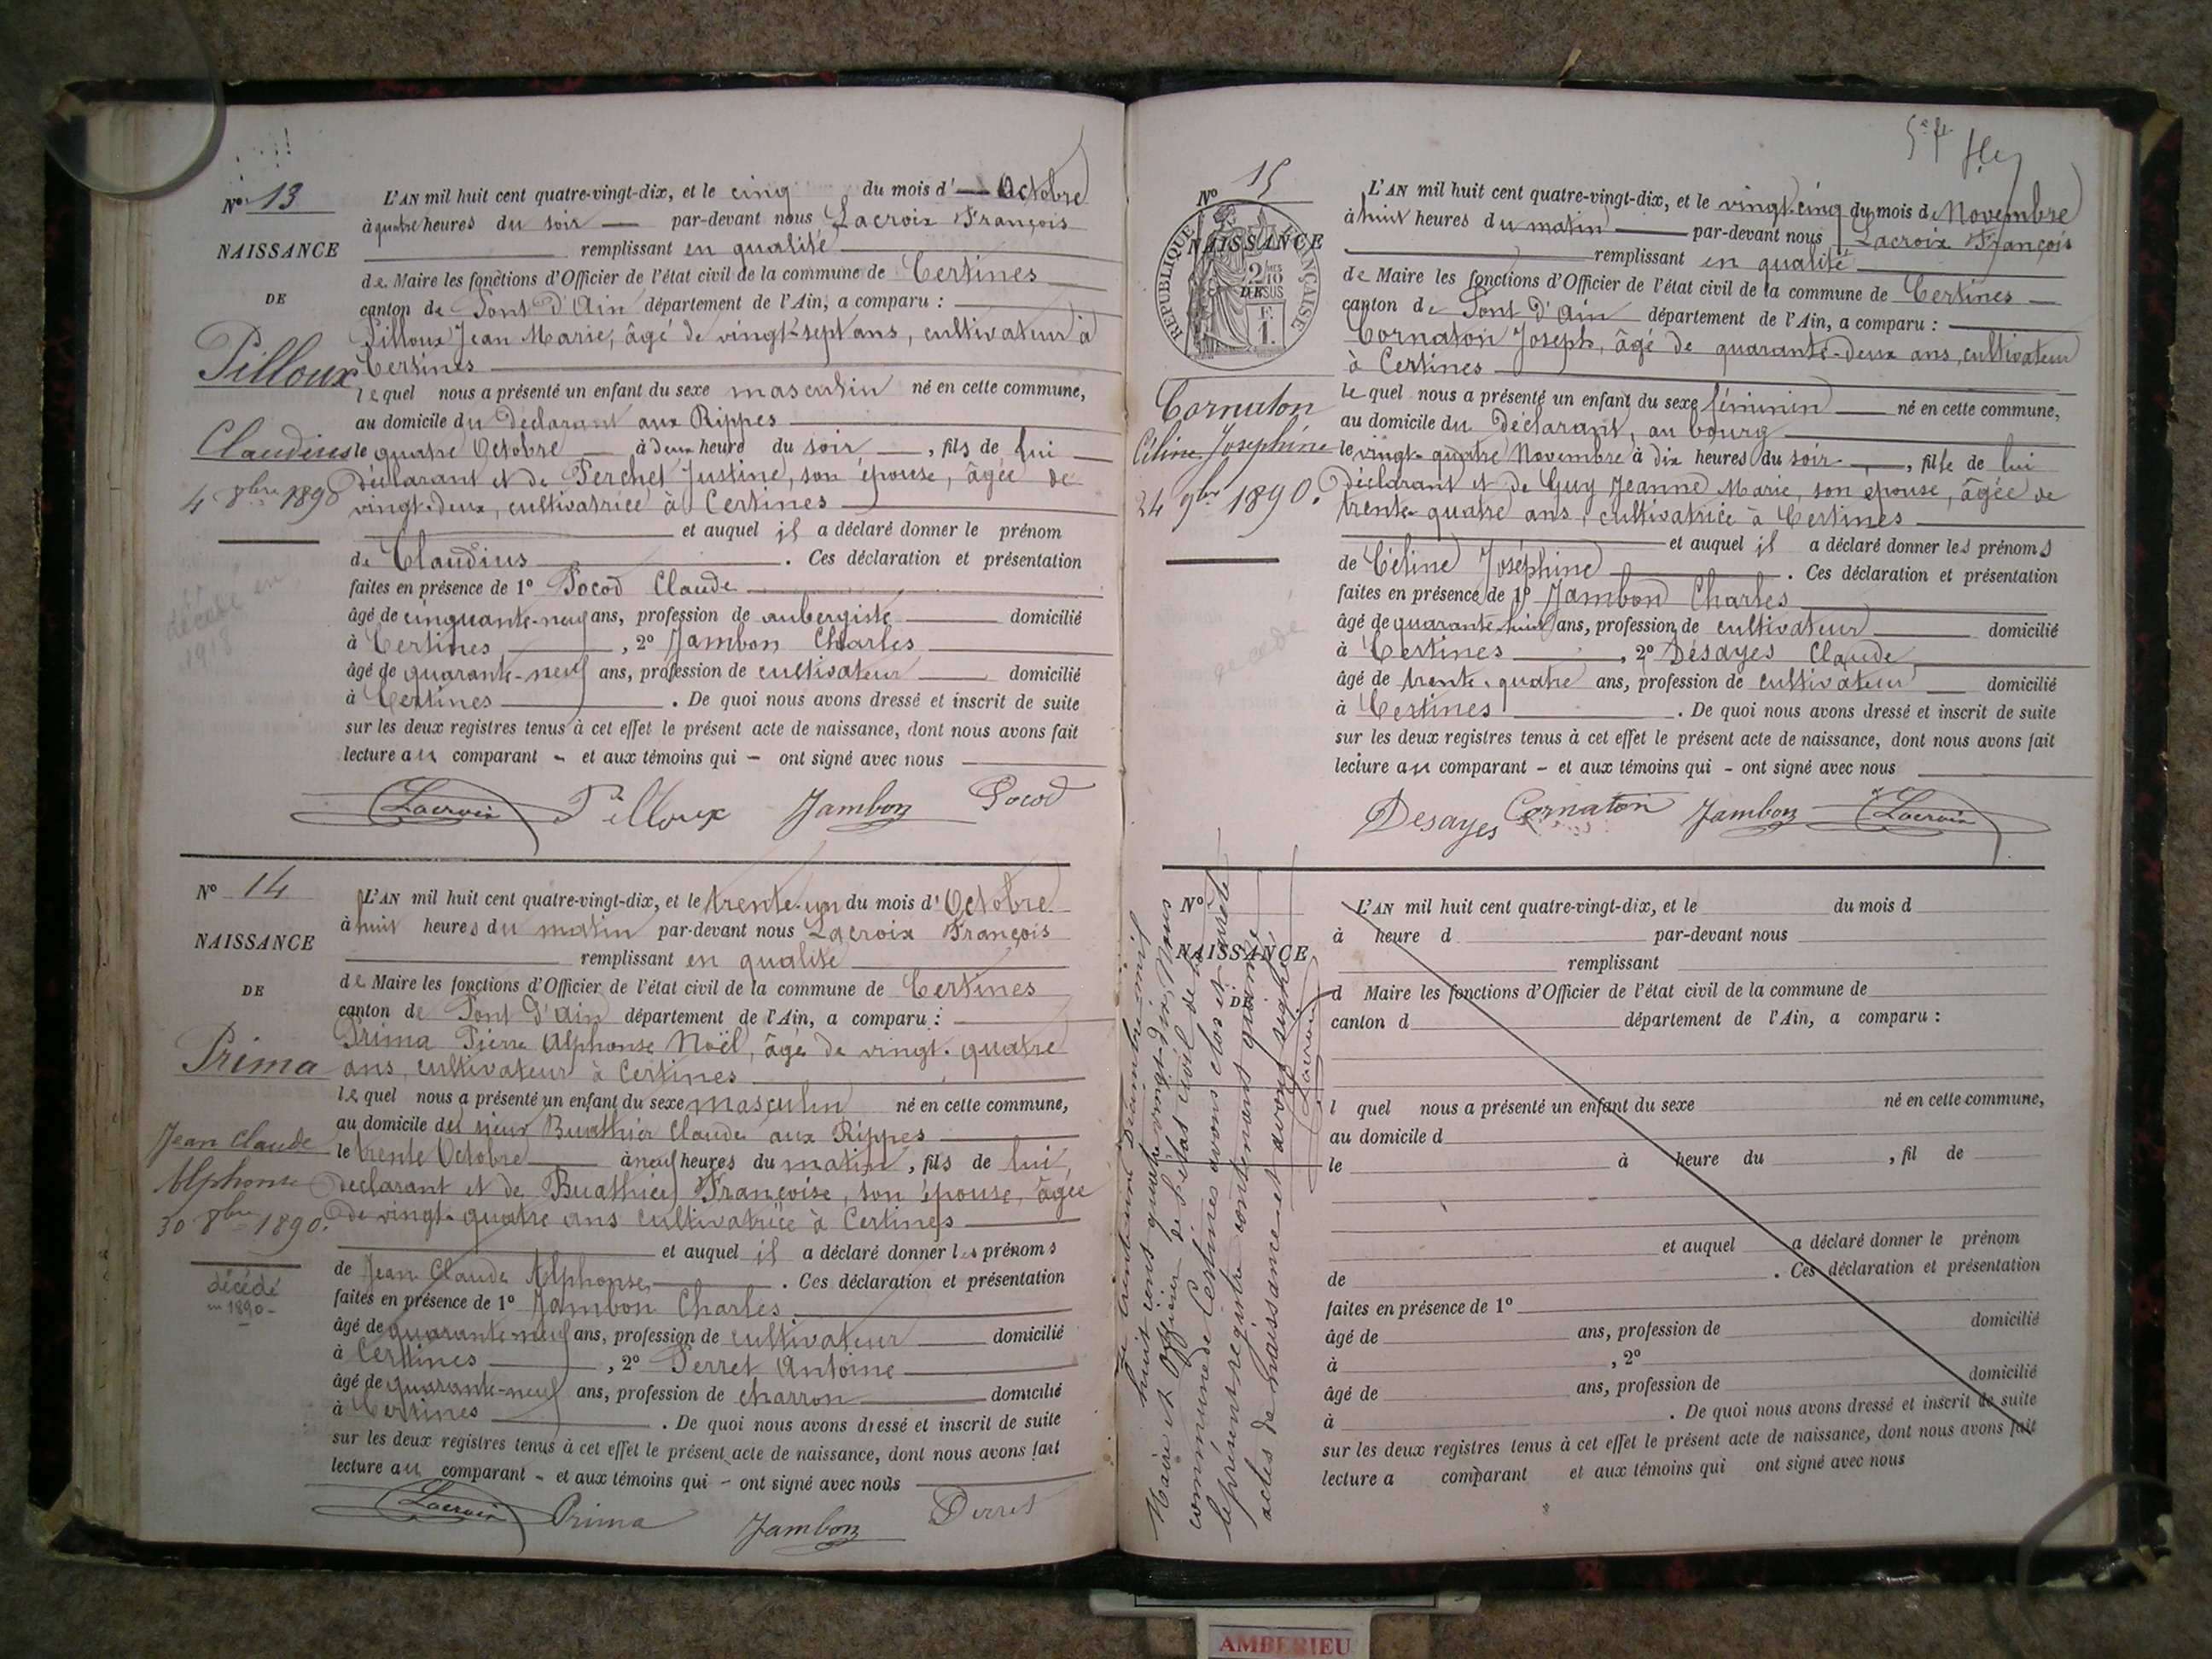 N° 13
NAISSANCE
DE
Pilloux
Claudius
4 8bre 1890
décédé en
1918
L'AN mil huit cent quatre-vingt-dix, et le cinq du mois d' Octobre
à quatre heures du soir par-devant nous Lacroix François
remplissant en qualité
de Maire les fonctions d'Officier de l'état civil de la commune de Certines
canton de Pont d'Ain département de l'Ain, a comparu :
Pilloux Jean Marie, âgé de vingt-sept ans, cultivateur à
Certines
lequel nous a présenté un enfant du sexe masculin né en cette commune,
au domicile du Déclarant aux Rippes
le quatre Octobre à deux heure du soir, fils de lui
déclarant et de Perchet Justine, son épouse, âgée de
vingt-deux, cultivatrice à Certines
et auquel il a déclaré donner le prénom
de Claudius. Ces déclaration et présentation
faites en présence de 1° Pocod Claude
âgé de cinquante-neuf ans, profession de aubergiste domicilié
à Certines, 2° Jambon Charles
âgé de quarante-neuf ans, profession de cultivateur domicilié
à Certines. De quoi nous avons dressé et inscrit de suite
sur les deux registres tenus à cet effet le présent acte de naissance, dont nous avons fait
lecture au comparant - et aux témoins qui - ont signé avec nous
Lacroix Pilloux Jambon Pocod
N° 14
NAISSANCE
DE
Prima
Jean Claude
Alphonse
30 8bre 1890.
décédé
en 1890-
L'AN mil huit cent quatre-vingt-dix, et le trente-un du mois d'Octobre
à huit heures du matin par-devant nous Lacroix François
remplissant en qualité
de Maire les fonctions d'Officier de l'état civil de la commune de Certines
canton de Pont d'Ain département de l'Ain, a comparu :
Prima Pierre Alphonse Noël, âge de vingt-quatre
ans, cultivateur à Certines
lequel nous a présenté un enfant du sexe masculin né en cette commune,
au domicile du sieur Buathier Claude aux Rippes
le trente Octobre à neuf heures du matin, fils de lui,
déclarant et de Buathier Françoise, son épouse, âgée
de vingt-quatre ans cultivatrice à Certines
et auquel il a déclaré donner les prénoms
de Jean Claude Alphonse. Ces déclaration et présentation
faites en présence de 1° Jambon Charles
âgé de quarante-neuf ans, profession de cultivateur domicilié
à Certines, 2° Perret Antoine
âgé de quarante-neuf ans, profession de charron domicilié
à Certines. De quoi nous avons dressé et inscrit de suite
sur les deux registres tenus à cet effet le présent acte de naissance, dont nous avons fait
lecture au comparant - et aux témoins qui - ont signé avec nous
Lacroix Prima Jambon Perret
N° 15
NAISSANCE
DE
RÉPUBLIQUE FRANÇAISE
2/10
EN SUS
F.
1.
Cornaton
Céline Joséphine
24 9bre 1890.
L'AN mil huit cent quatre-vingt-dix, et le vingt-cinq du mois de Novembre
à huit heures du matin par-devant nous Lacroix François
remplissant en qualité
de Maire les fonctions d'Officier de l'état civil de la commune de Certines
canton de Pont d'Ain département de l'Ain, a comparu :
Cornaton Joseph, âgé de quarante-deux ans, cultivateur
à Certines
lequel nous a présenté un enfant du sexe féminin né en cette commune,
au domicile du déclarant, au bourg
le vingt-quatre Novembre à dix heures du soir, fille de lui
déclarant et de Guy Jeanne Marie, son épouse, âgée de
trente-quatre ans, cultivatrice à Certines
et auquel il a déclaré donner les prénoms
de Céline Joséphine. Ces déclaration et présentation
faites en présence de 1° Jambon Charles
âgé de quarante-huit ans, profession de cultivateur domicilié
à Certines, 2° Désayes Claude
âgé de trente-quatre ans, profession de cultivateur domicilié
à Certines. De quoi nous avons dressé et inscrit de suite
sur les deux registres tenus à cet effet le présent acte de naissance, dont nous avons fait
lecture au comparant - et aux témoins qui - ont signé avec nous
Desayes Cornaton Jambon Lacroix
N°
NAISSANCE
DE
Le trente-un Décembre mil
huit cent quatre vingt-dix, Nous
Maire et Officier de l'état civil de la
commune de Certines avons clos et arrêté
le présent registre contenant quinze
actes de naissance et avons signé
Lacroix
L'AN mil huit cent quatre-vingt-dix, et le du mois d
à heure d par-devant nous
remplissant
d Maire les fonctions d'Officier de l'état civil de la commune de
canton d département de l'Ain, a comparu :
l quel nous a présenté un enfant du sexe né en cette commune,
au domicile d
le à heure du , fil de
et auquel a déclaré donner le prénom
de . Ces déclaration et présentation
faites en présence de 1°
âgé de ans, profession de domicilié
à , 2°
âgé de ans, profession de domicilié
à . De quoi nous avons dressé et inscrit de suite
sur les deux registres tenus à cet effet le présent acte de naissance, dont nous avons fait
lecture a comparant et aux témoins qui ont signé avec nous
AMBERIEU